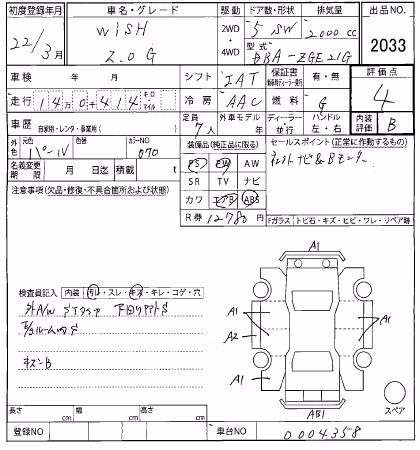 初度登録年月 車名・グレード 駆動 ドア数・形状 排気量 出品NO.
22/3月 WISH 2WD・4WD 5 SW 2000 cc 2033
2.0G 型式 DBA-ZGE21G
車検 年 月 シフト IAT 保証書 有・無 評価点
走行 14万0千414 キロ マイル 冷房 AAC 燃料 G 4
車歴 自家用・レンタ・事業用( ) 定員 7人 外車モデル 年 ディーラー・並行 ハンドル 左・右 内装評価 B
元色 パール 色替 カラーNO 070 装備品(純正品に限る) セールスポイント(正常に作動するもの)
名義変更期限 月 日迄 積載 t PS PW AW
注意事項(欠品・修復・不具合箇所および状態) SR TV ナビ
カワ エアB ABS
R券 12780円 Fガラス トビ石・キズ・ヒビ・ワレ・リペア跡
検査員記入 内装 汚レ・スレ・キズ・キレ・コゲ・穴
キズンB
A1
A1 A1
A2
A1 A1
AB1
スペア
長さ cm 幅 cm 高さ cm
登録NO 車台NO 0004358